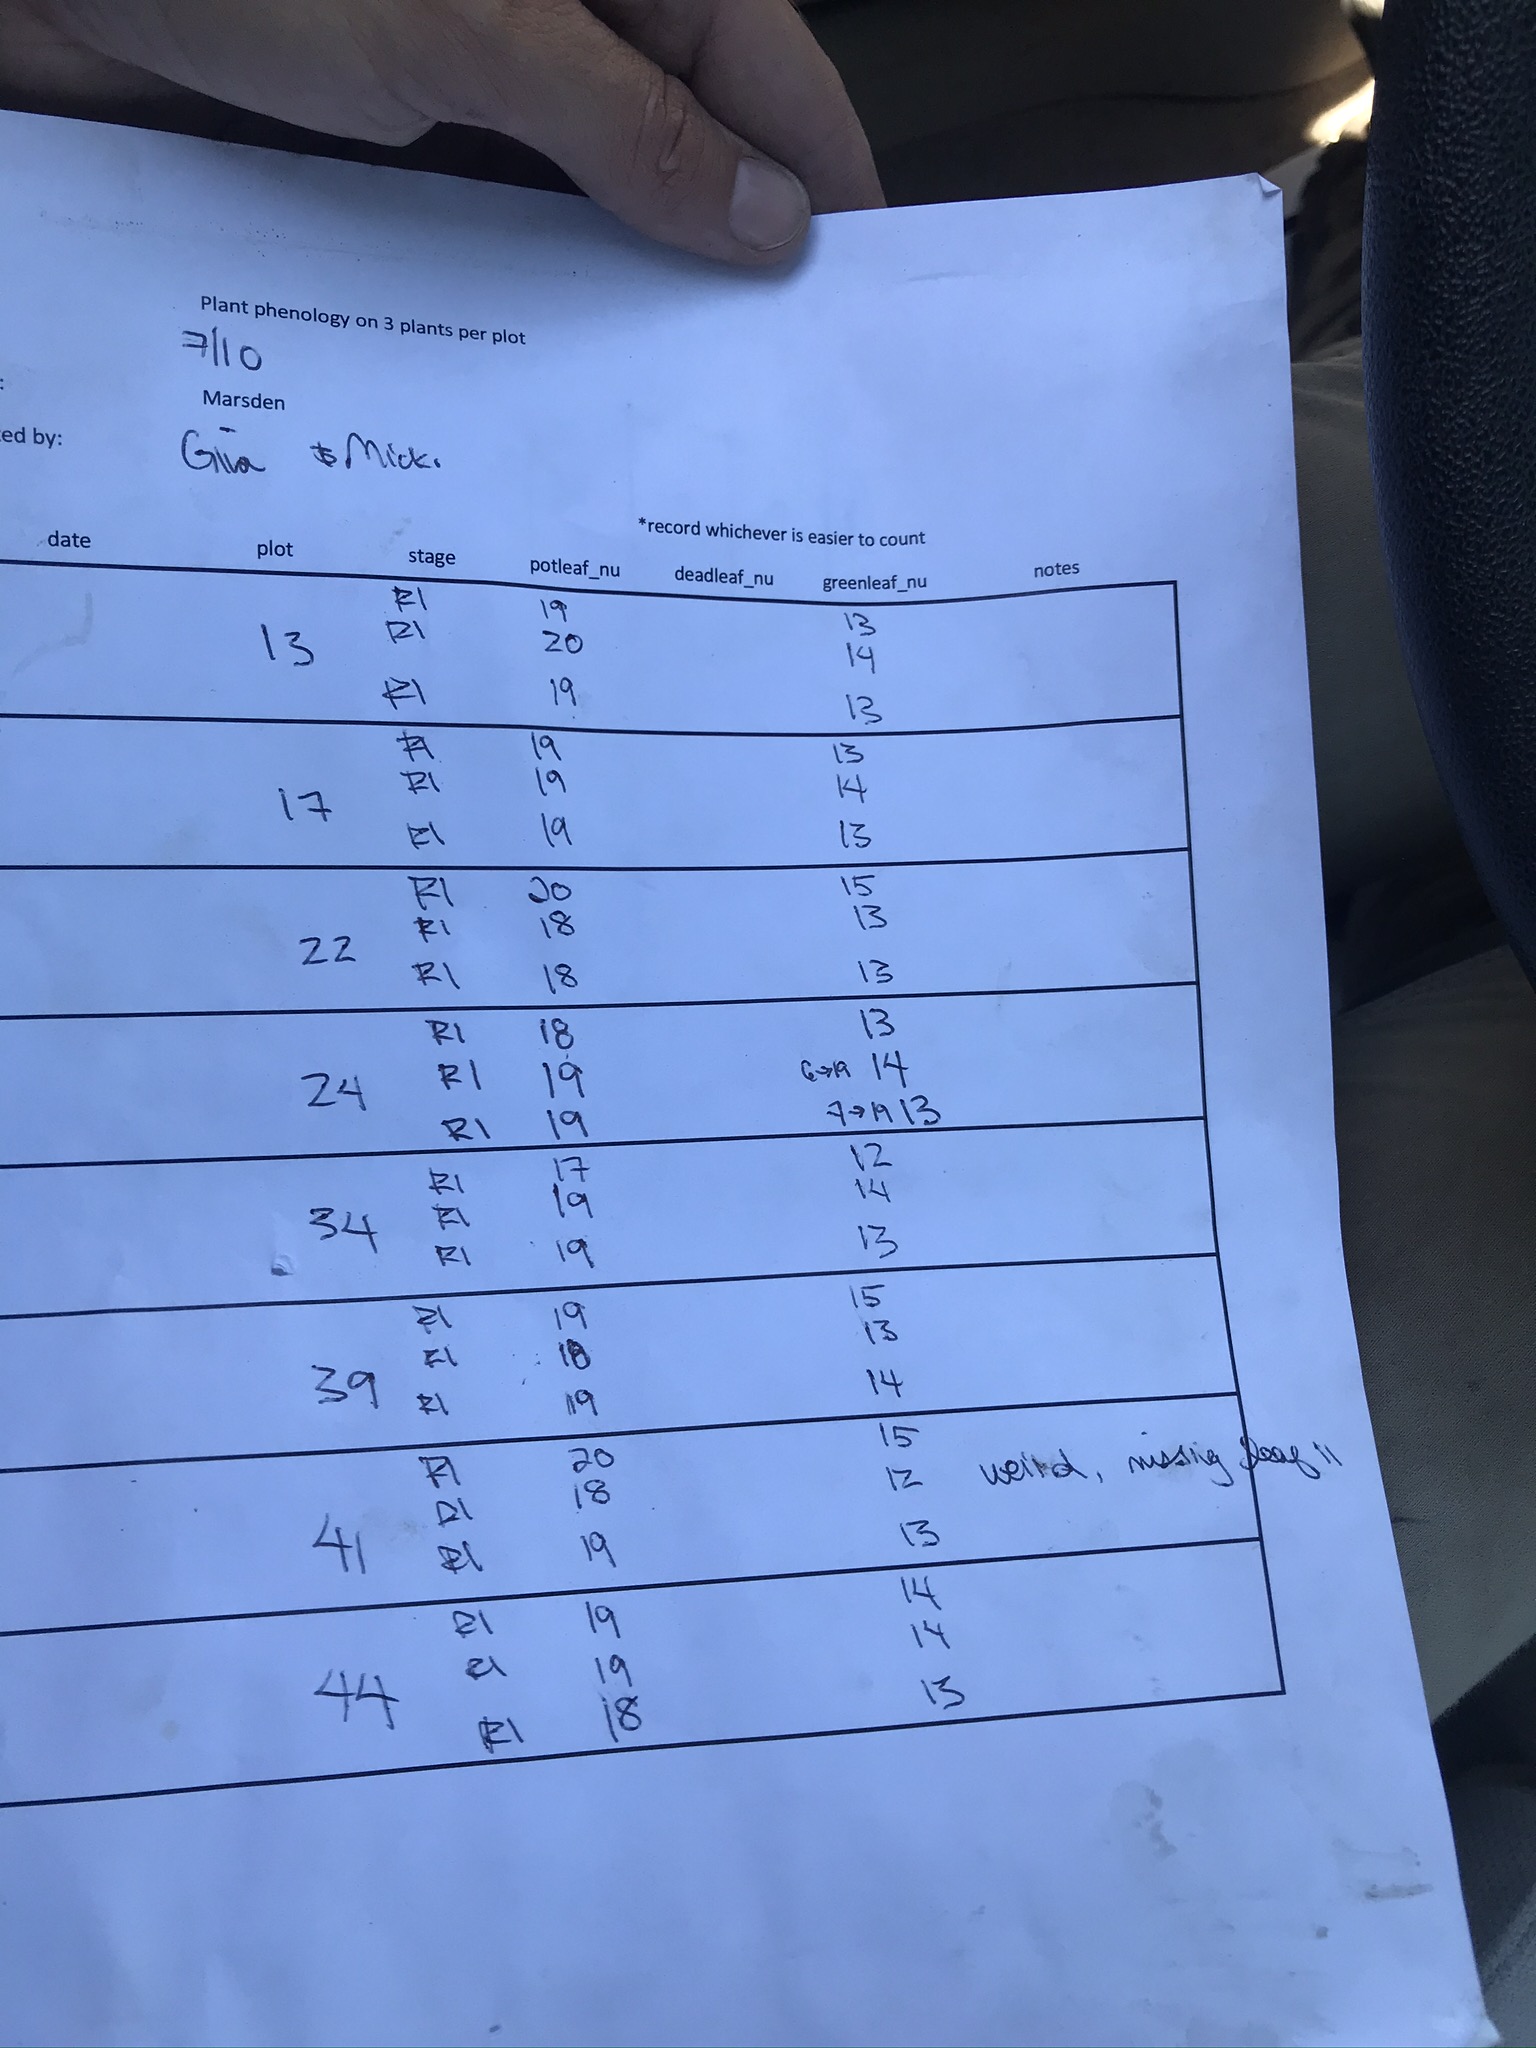 Plant phenology on 3 plants per plot
7/10
:
Marsden
ed by: Gina & Mick.
*record whichever is easier to count
date plot stage potleaf_nu deadleaf_nu greenleaf_nu notes
R1 19 13
13 R1 20 14
R1 19 13
R1 19 13
17 R1 19 14
R1 19 13
R1 20 15
22 R1 18 13
R1 18 13
R1 18 13
24 R1 19 6→19 14
R1 19 7→19 13
R1 17 12
34 R1 19 14
R1 19 13
R1 19 15
39 R1 18 13
R1 19 14
R1 20 15
41 R1 18 12 weird, missing leaf 11
R1 19 13
R1 19 14
44 R1 19 14
R1 18 13